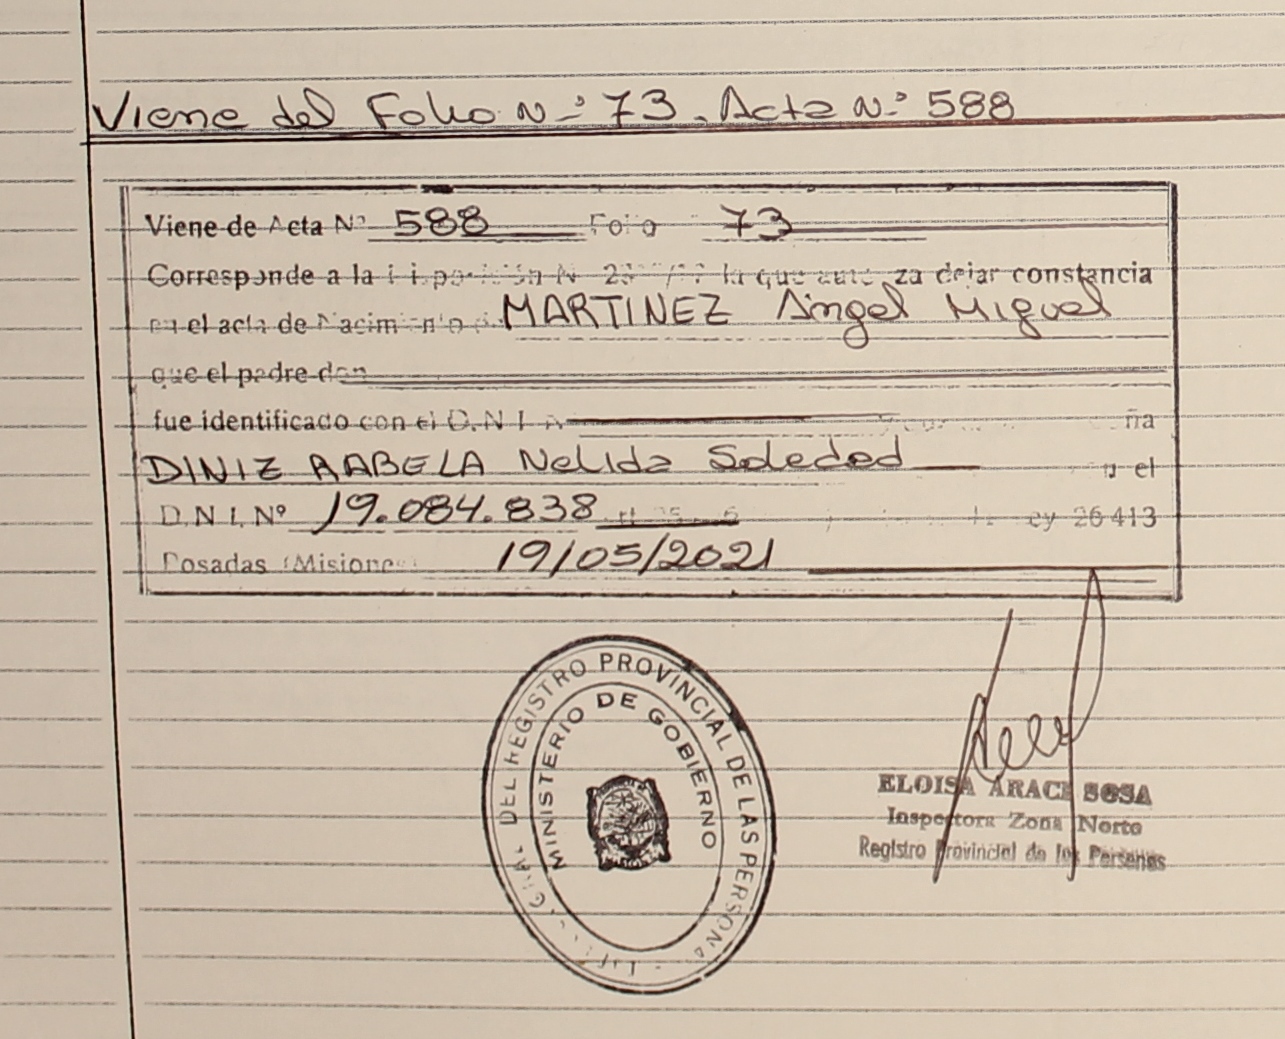 Viene del Folio N-° 73. Acta N-° 588
Viene de Acta Nº 588 Folio 73
Corresponde a la que autoriza dejar constancia
en el acta de Nacimiento MARTINEZ Angel Miguel
que el padre don
fue identificado con el D.N.I. ña
DINIZ RABELA Nelida Soledad el
D.N.I. Nº 19.084.838 26 413
Posadas (Misiones 19/05/2021
DEL REGISTRO PROVINCIAL DE LAS PERSONAS
MINISTERIO DE GOBIERNO
ELOISA ARACI SOSA
Inspectora Zona Norte
Registro Provincial de las Personas